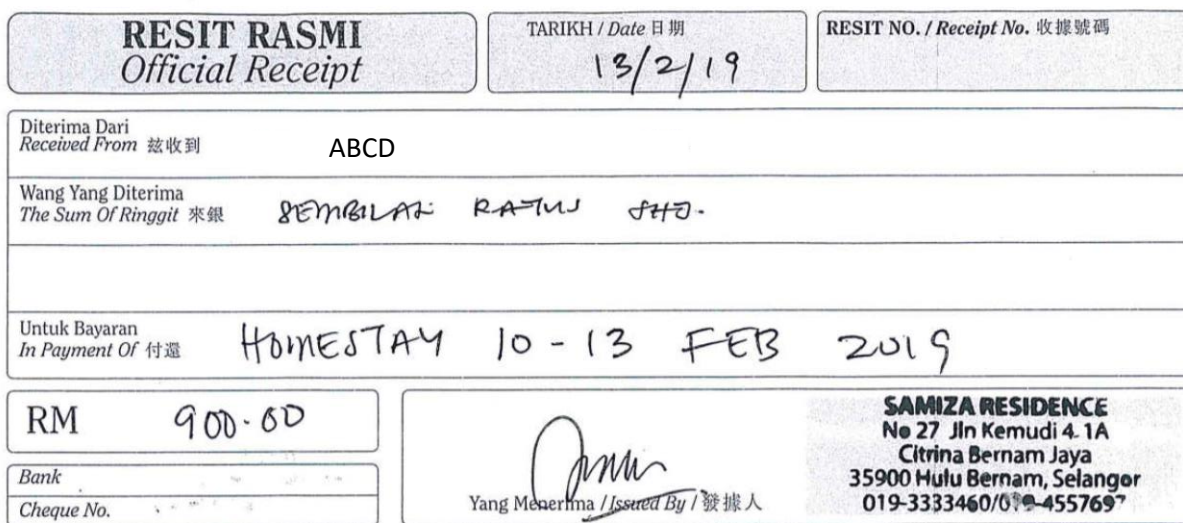 RESIT RASMI
Official Receipt
TARIKH / Date 日期
13/2/19
RESIT NO. / Receipt No. 收據號碼
Diterima Dari
Received From 茲收到
ABCD
Wang Yang Diterima
The Sum Of Ringgit 來銀
SEMBILAN RATUS SHJ.
Untuk Bayaran
In Payment Of 付還
HOMESTAY 10 - 13 FEB 2019
RM 900.00
Bank
Cheque No.
Yang Menerima / Issued By / 發據人
SAMIZA RESIDENCE
No 27 Jln Kemudi 4 1A
Citrina Bernam Jaya
35900 Hulu Bernam, Selangor
019-3333460/019-4557697